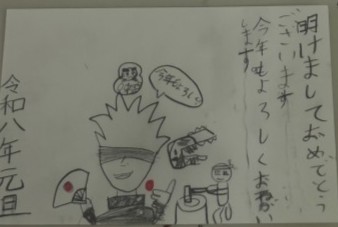 明けましておめでとう
ございます
今年もよろしくおねがい
します
今年もよろしく
令和八年元旦